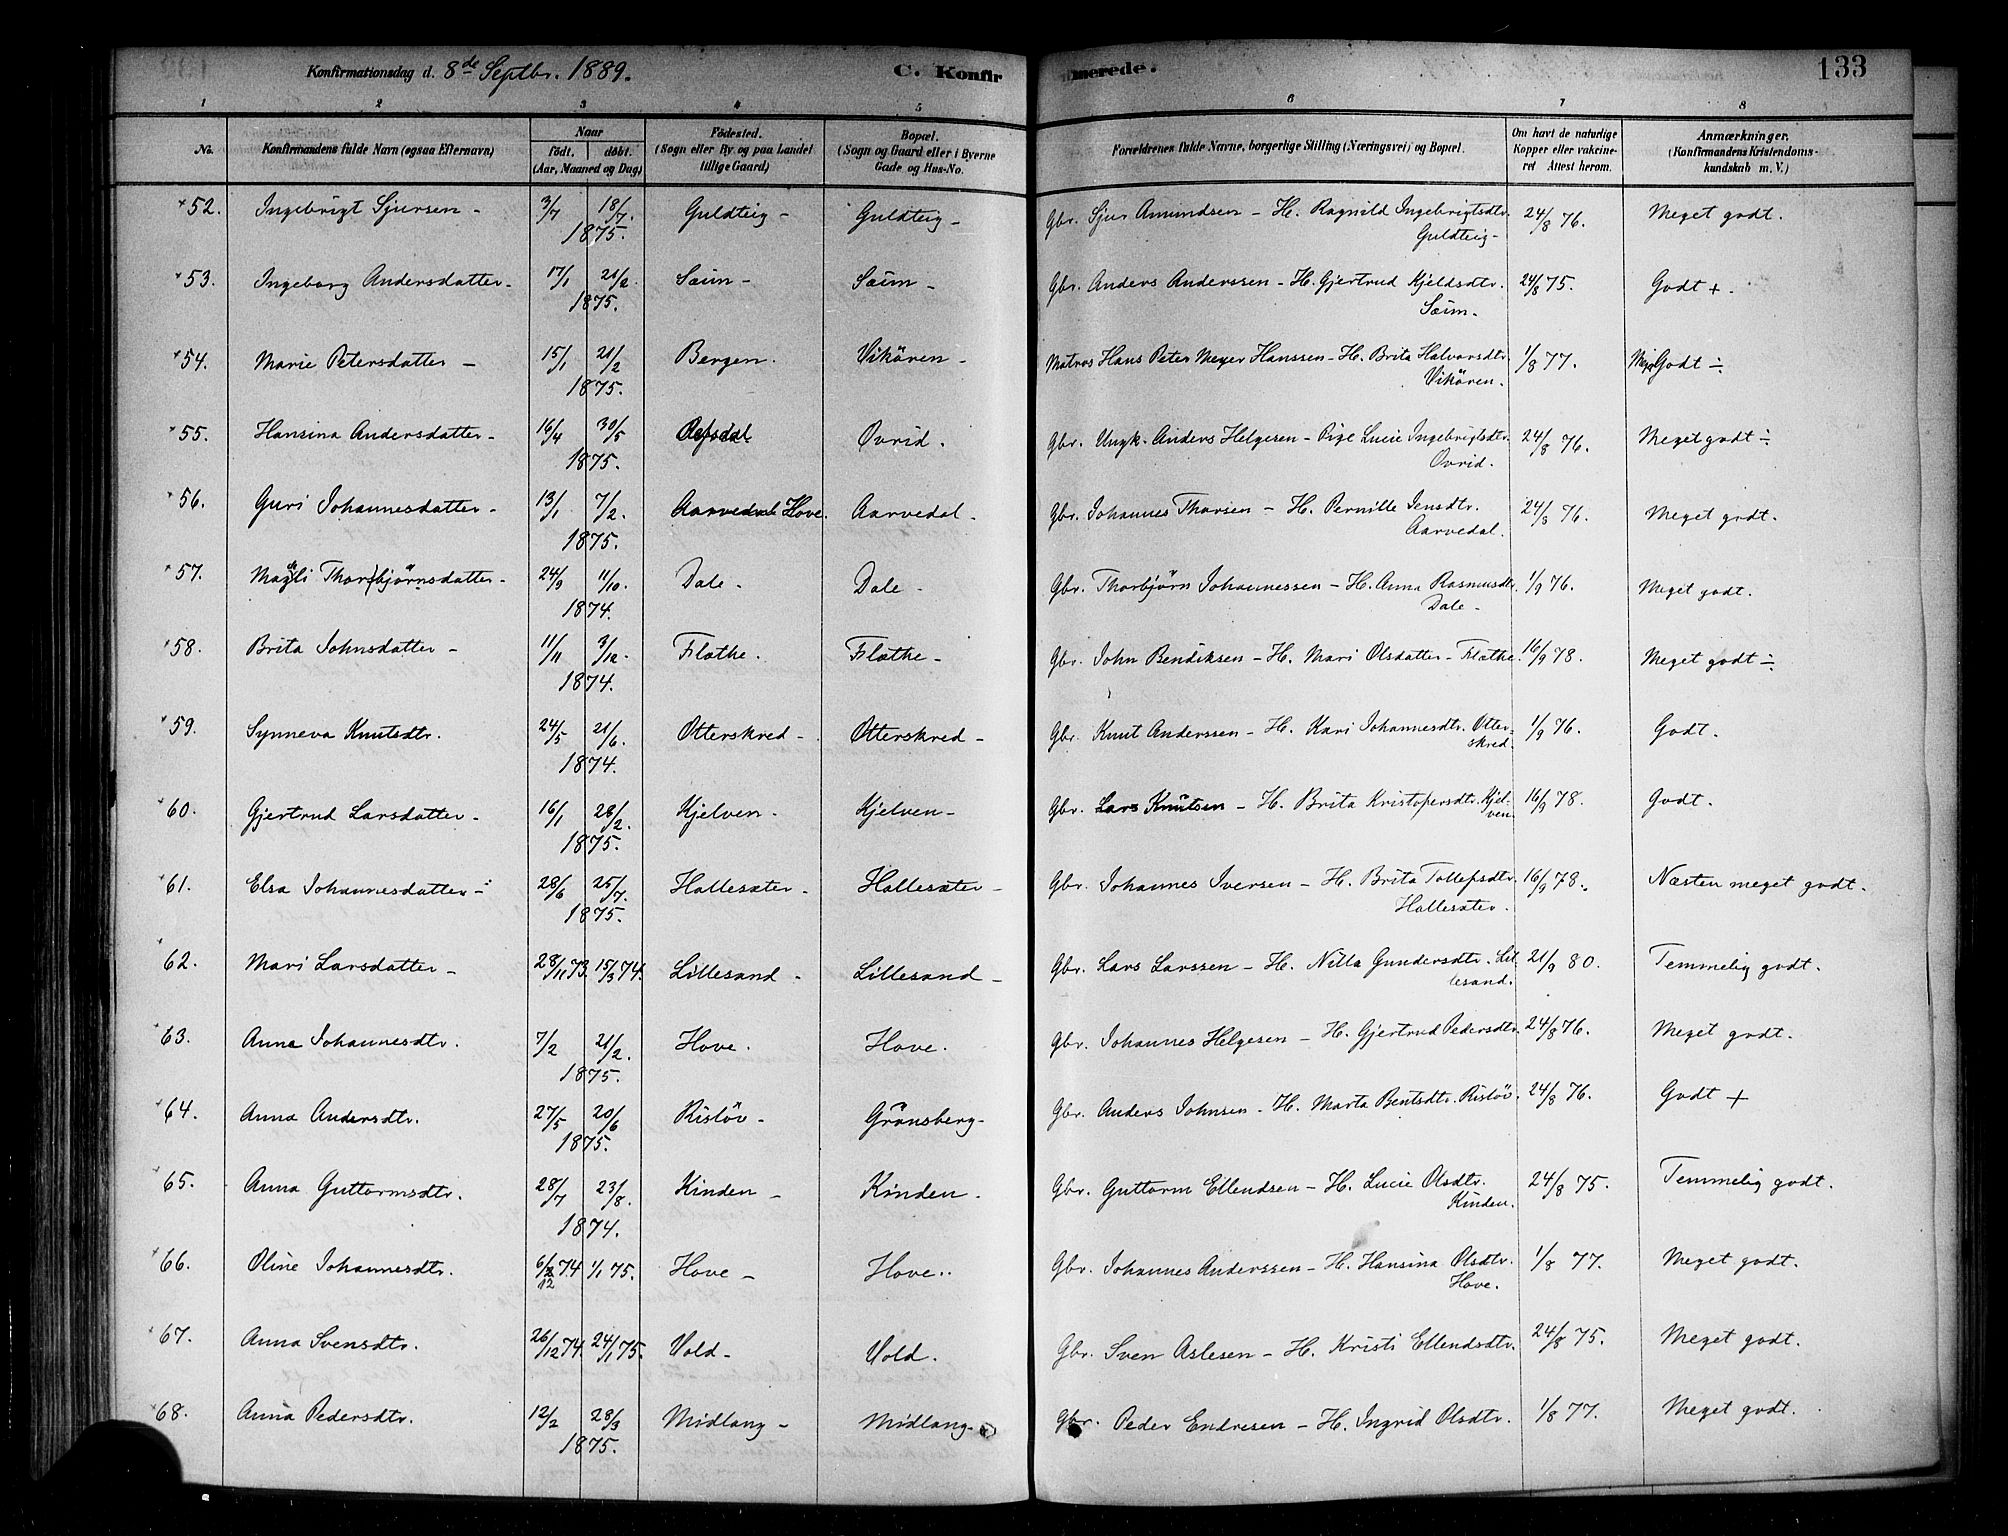 Konfirmationsdag d. 8de Septbr. 1889. C. Konfirmerede. 133
1 2 3 4 5 6 7 8
No. Konfirmandens fulde Navn (ogsaa Efternavn) Naar født. døbt. (Aar, Maaned og Dag) Fødested. (Sogn eller By og paa Landet tillige Gaard) Bopæl. (Sogn og Gaard eller i Byerne Gade og Hus-No. Forældrenes fulde Navne, borgerlige Stilling (Næringsvei) og Bopæl. Om havt de naturlige Kopper eller vakcineret Attest herom. Anmærkninger. (Konfirmandens Kristendomskundskab m. V.)
52. Ingebrigt Sjursen - 3/7 18/7. Guldteig - Guldteig - Gbr. Sjur Amundsen - H. Ragnild Ingebrigtsdtr. 24/8 76. Meget godt.
1875. Guldteig -
53. Ingeborg Andersdatter - 17/1 21/2. Sæim - Sæim - Gbr. Anders Anderssen - H. Gjertrud Kjeldsdtr. 24/8 75. Godt +.
1875. Sæim.
54. Marie Petersdatter - 15/1 21/2 Bergen. Vikören - Matros Hans Peter Meyer Hanssen - H. Brita Halvorsdtr. 1/8 77. Meget Godt ÷
1875. Vikören.
55. Hansina Andersdatter - 16/4 30/5 Refsdal Ovrid. Gbr. Ungk. Anders Helgesen - Pige Lucie Ingebrigtsdtr. 24/8 76. Meget godt ÷
1875. Ovrid.
56. Guri Johannesdatter - 13/1 7/2. Aarvedal Hove. Aarvedal. Gbr. Johannes Thorsen - H. Pernille Jensdtr. 24/8 76. Meget godt.
1875. Aarvedal.
57. Magli Thorbjörnsdatter - 24/9 11/10. Dale - Dale - Gbr. Thorbjörn Johannessen - H. Anna Rasmusdtr. 1/9 76. Meget godt.
1874. Dale -
58. Brita Johnsdatter - 11/11 3/12. Flathe. Flathe - Gbr. John Bendiksen - H. Mari Olsdatter - Flathe. 16/9 78. Meget godt ÷
1874.
59. Synneva Knutsdtr. 24/5 21/6. Otterskred - Otterskred - Gbr. Knut Anderssen - H. Kari Johannesdtr. Otter- 1/9 76. Godt.
1874. skred.
60. Gjertrud Larsdatter - 16/1 28/2. Kjelven - Kjelven - Gbr. Lars Knutsen - H. Brita Kristofersdtr. Kjel- 16/9 78. Godt.
1875. ven.
61. Elsa Johannesdatter - 28/6 25/7. Hallesæter - Hallesæter - Gbr. Johannes Iversen - H. Brita Tollefsdtr. 16/9 78. Næsten meget godt.
1875. Hallesæter.
62. Mari Larsdatter - 28/11 73. 15/3 74. Lillesand - Lillesand - Gbr. Lars Larssen - H. Nilla Gundersdtr. Lil- 21/9 80. Temmelig godt.
lesand.
63. Anna Johannesdtr. 7/2 21/2. Hove. Hove. Gbr. Johannes Helgesen - H. Gjertrud Pedersdtr. 24/8 76. Meget godt.
1875.
64. Anna Andersdtr. 27/5 20/6 Rislöv - Grönsberg - Gbr. Anders Johnsen - H. Marta Bentsdtr. Rislöv. 24/8 76. Godt +
1875.
65. Anna Guttormsdtr. 28/7 23/8. Kinden - Kinden - Gbr. Guttorm Ellendsen - H. Lucie Olsdtr. 24/8 75. Temmelig godt.
1874. Kinden.
66. Oline Johannesdtr. 6/12 74 1/1 75. Hove - Hove. Gbr. Johannes Anderssen - H. Hansina Olsdtr. 1/8 77. Meget godt.
Hove.
67. Anna Svensdtr. 26/12 74. 24/1 75. Vold - Vold. Gbr. Sven Aslesen - H. Kristi Ellendsdtr. 24/8 75. Meget godt.
68. Anna Pedersdtr. 12/2 28/3 Midlang - Midlang - Gbr. Peder Endresen - H. Ingrid Olsdtr. 1/8 77. Meget godt.
1875.